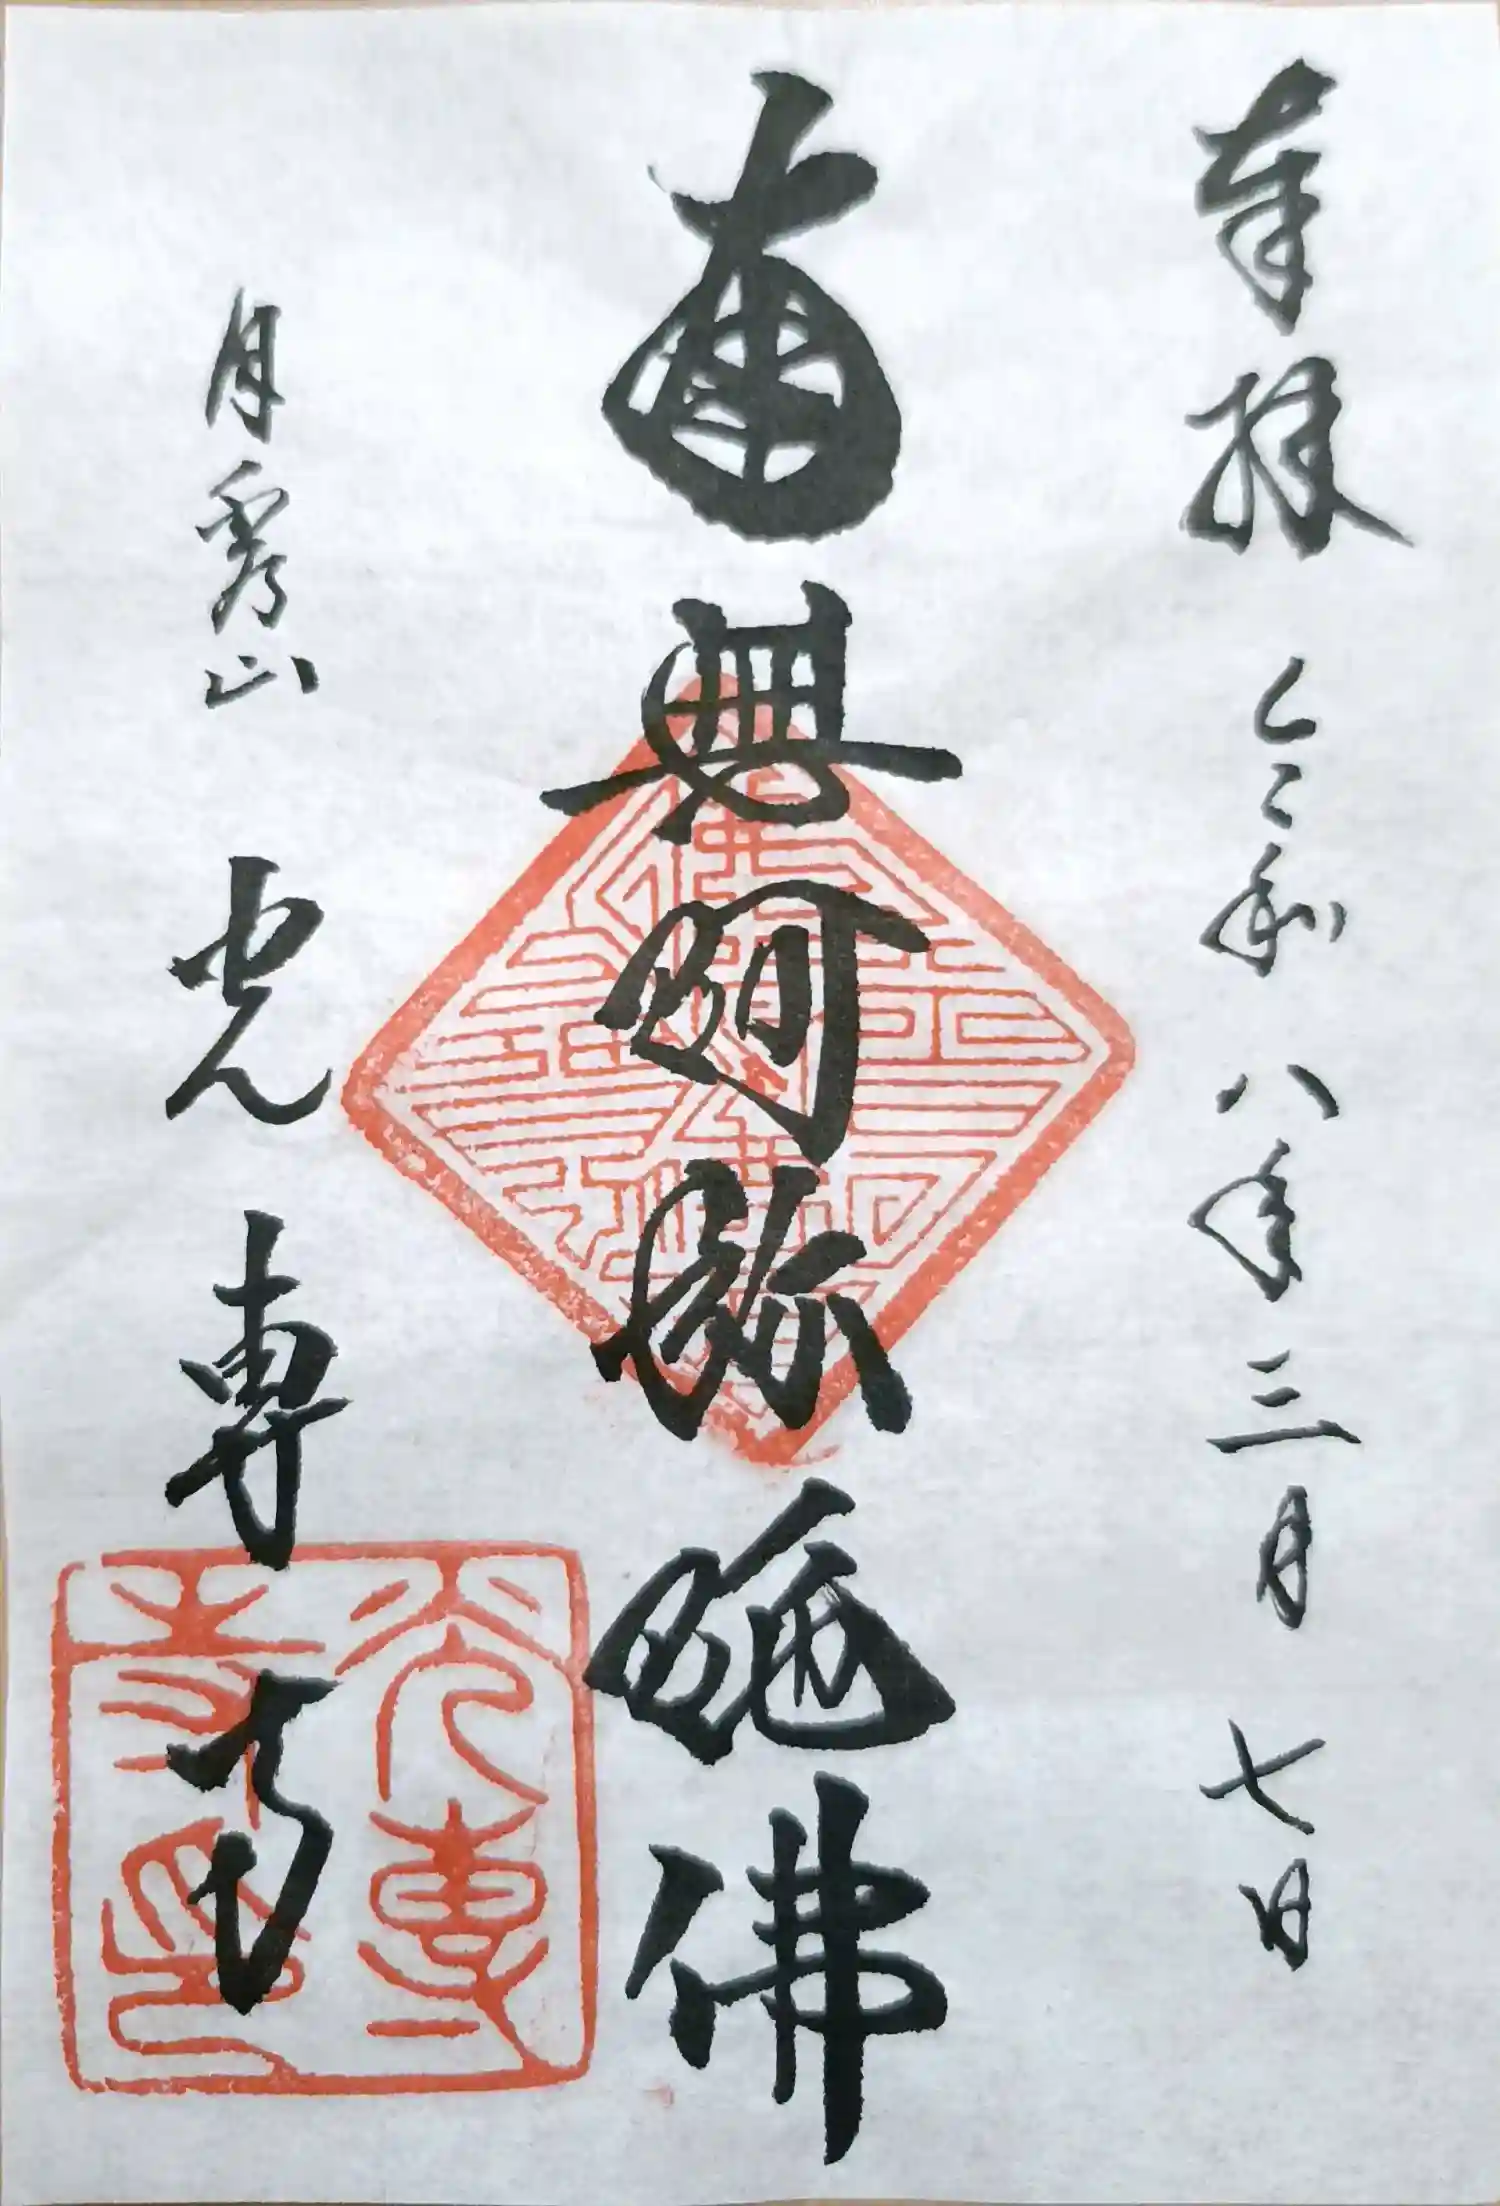 奉拝 令和八年三月七日
南無阿弥陀佛
月秀山 光專寺
光專寺印